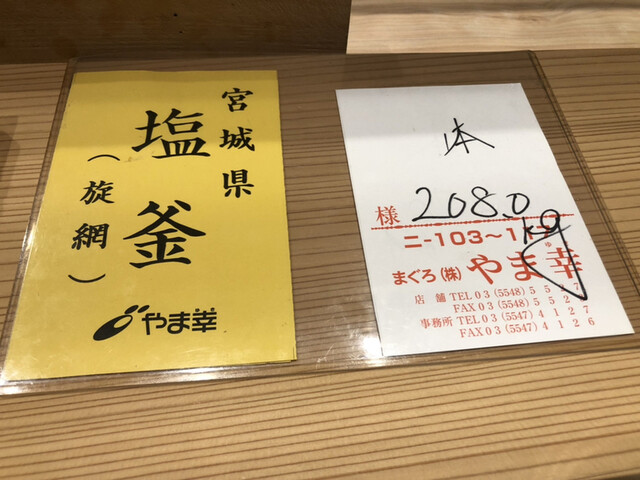 宮城県
塩釜
(旋網)
やま幸
本
208.0
kg
様
まぐろ(株)やま幸
店舗 TEL03(5548)5527
FAX03(5548)5527
事務所 TEL03(5547)4127
FAX03(5547)4126